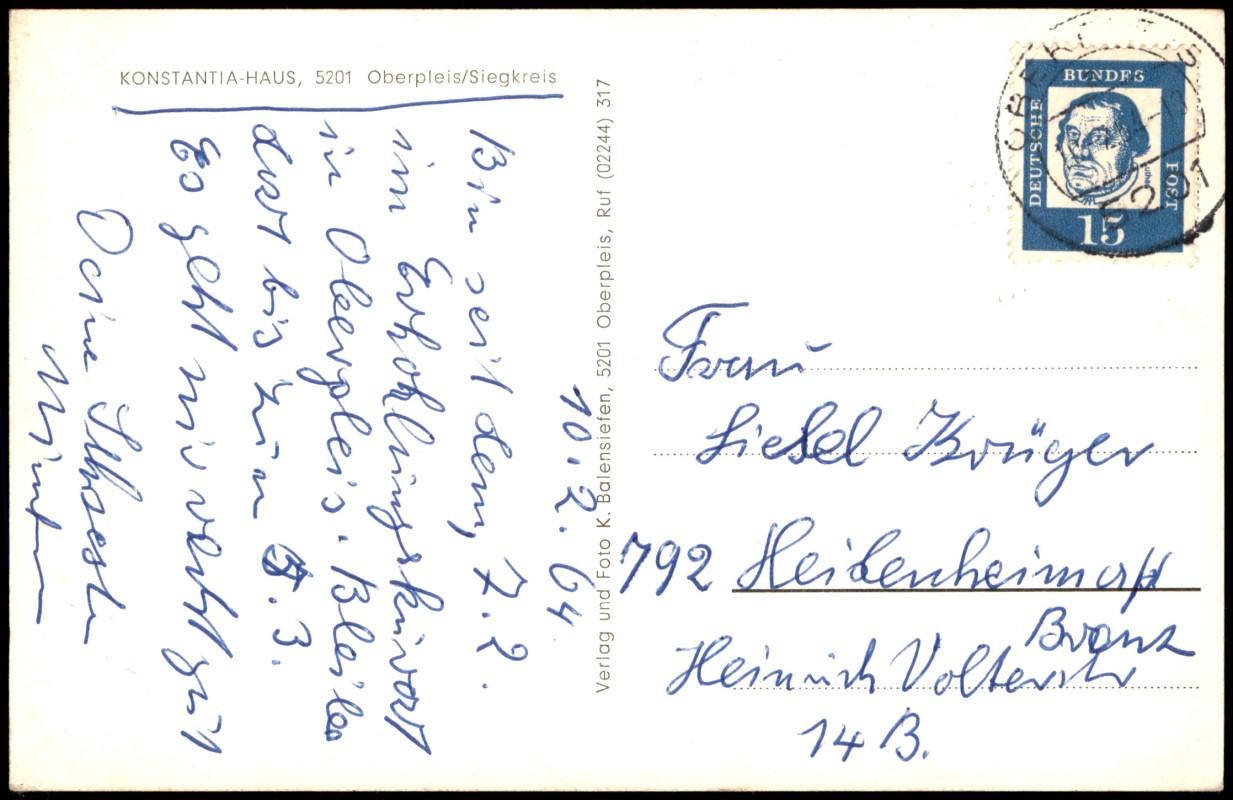 KONSTANTIA-HAUS, 5201 Oberpleis/Siegkreis
10.2.64
Bin seit dem, 7.2.
im Erholungskurort
in Oberpleis. Bleibe
dort bis zum 5.3.
Es geht mir recht gut
Deine
Verlag und Foto K. Balensiefen, 5201 Oberpleis, Ruf (02244) 317
DEUTSCHE
BUNDES
POST
15
5201
Frau
Liesel Krüger
792 Heidenheim
Brenz
Heinrich Volterstr
14 B.